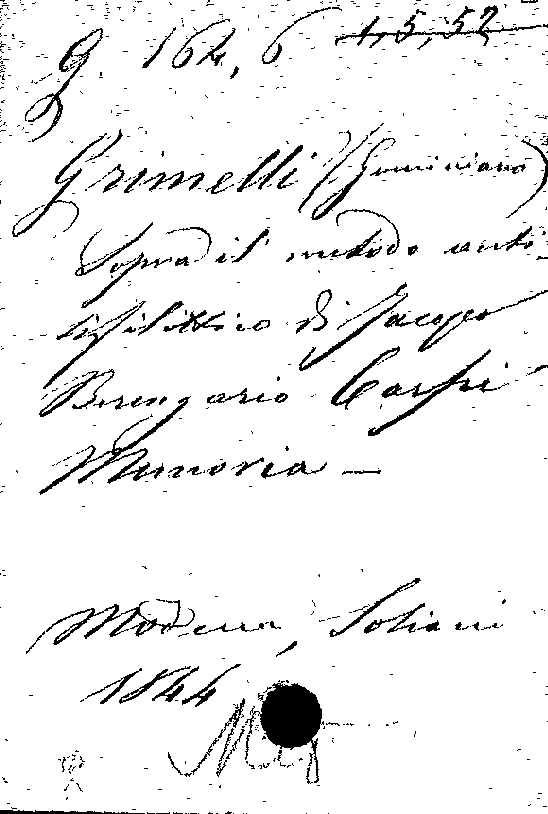 G. 164, 6 1,5,52
Grimelli (Geminiano)
Sopra il metodo anti-
sifilittico di Jacopo
Berengario Carpi
Memoria —
Modena, Soliani
1844